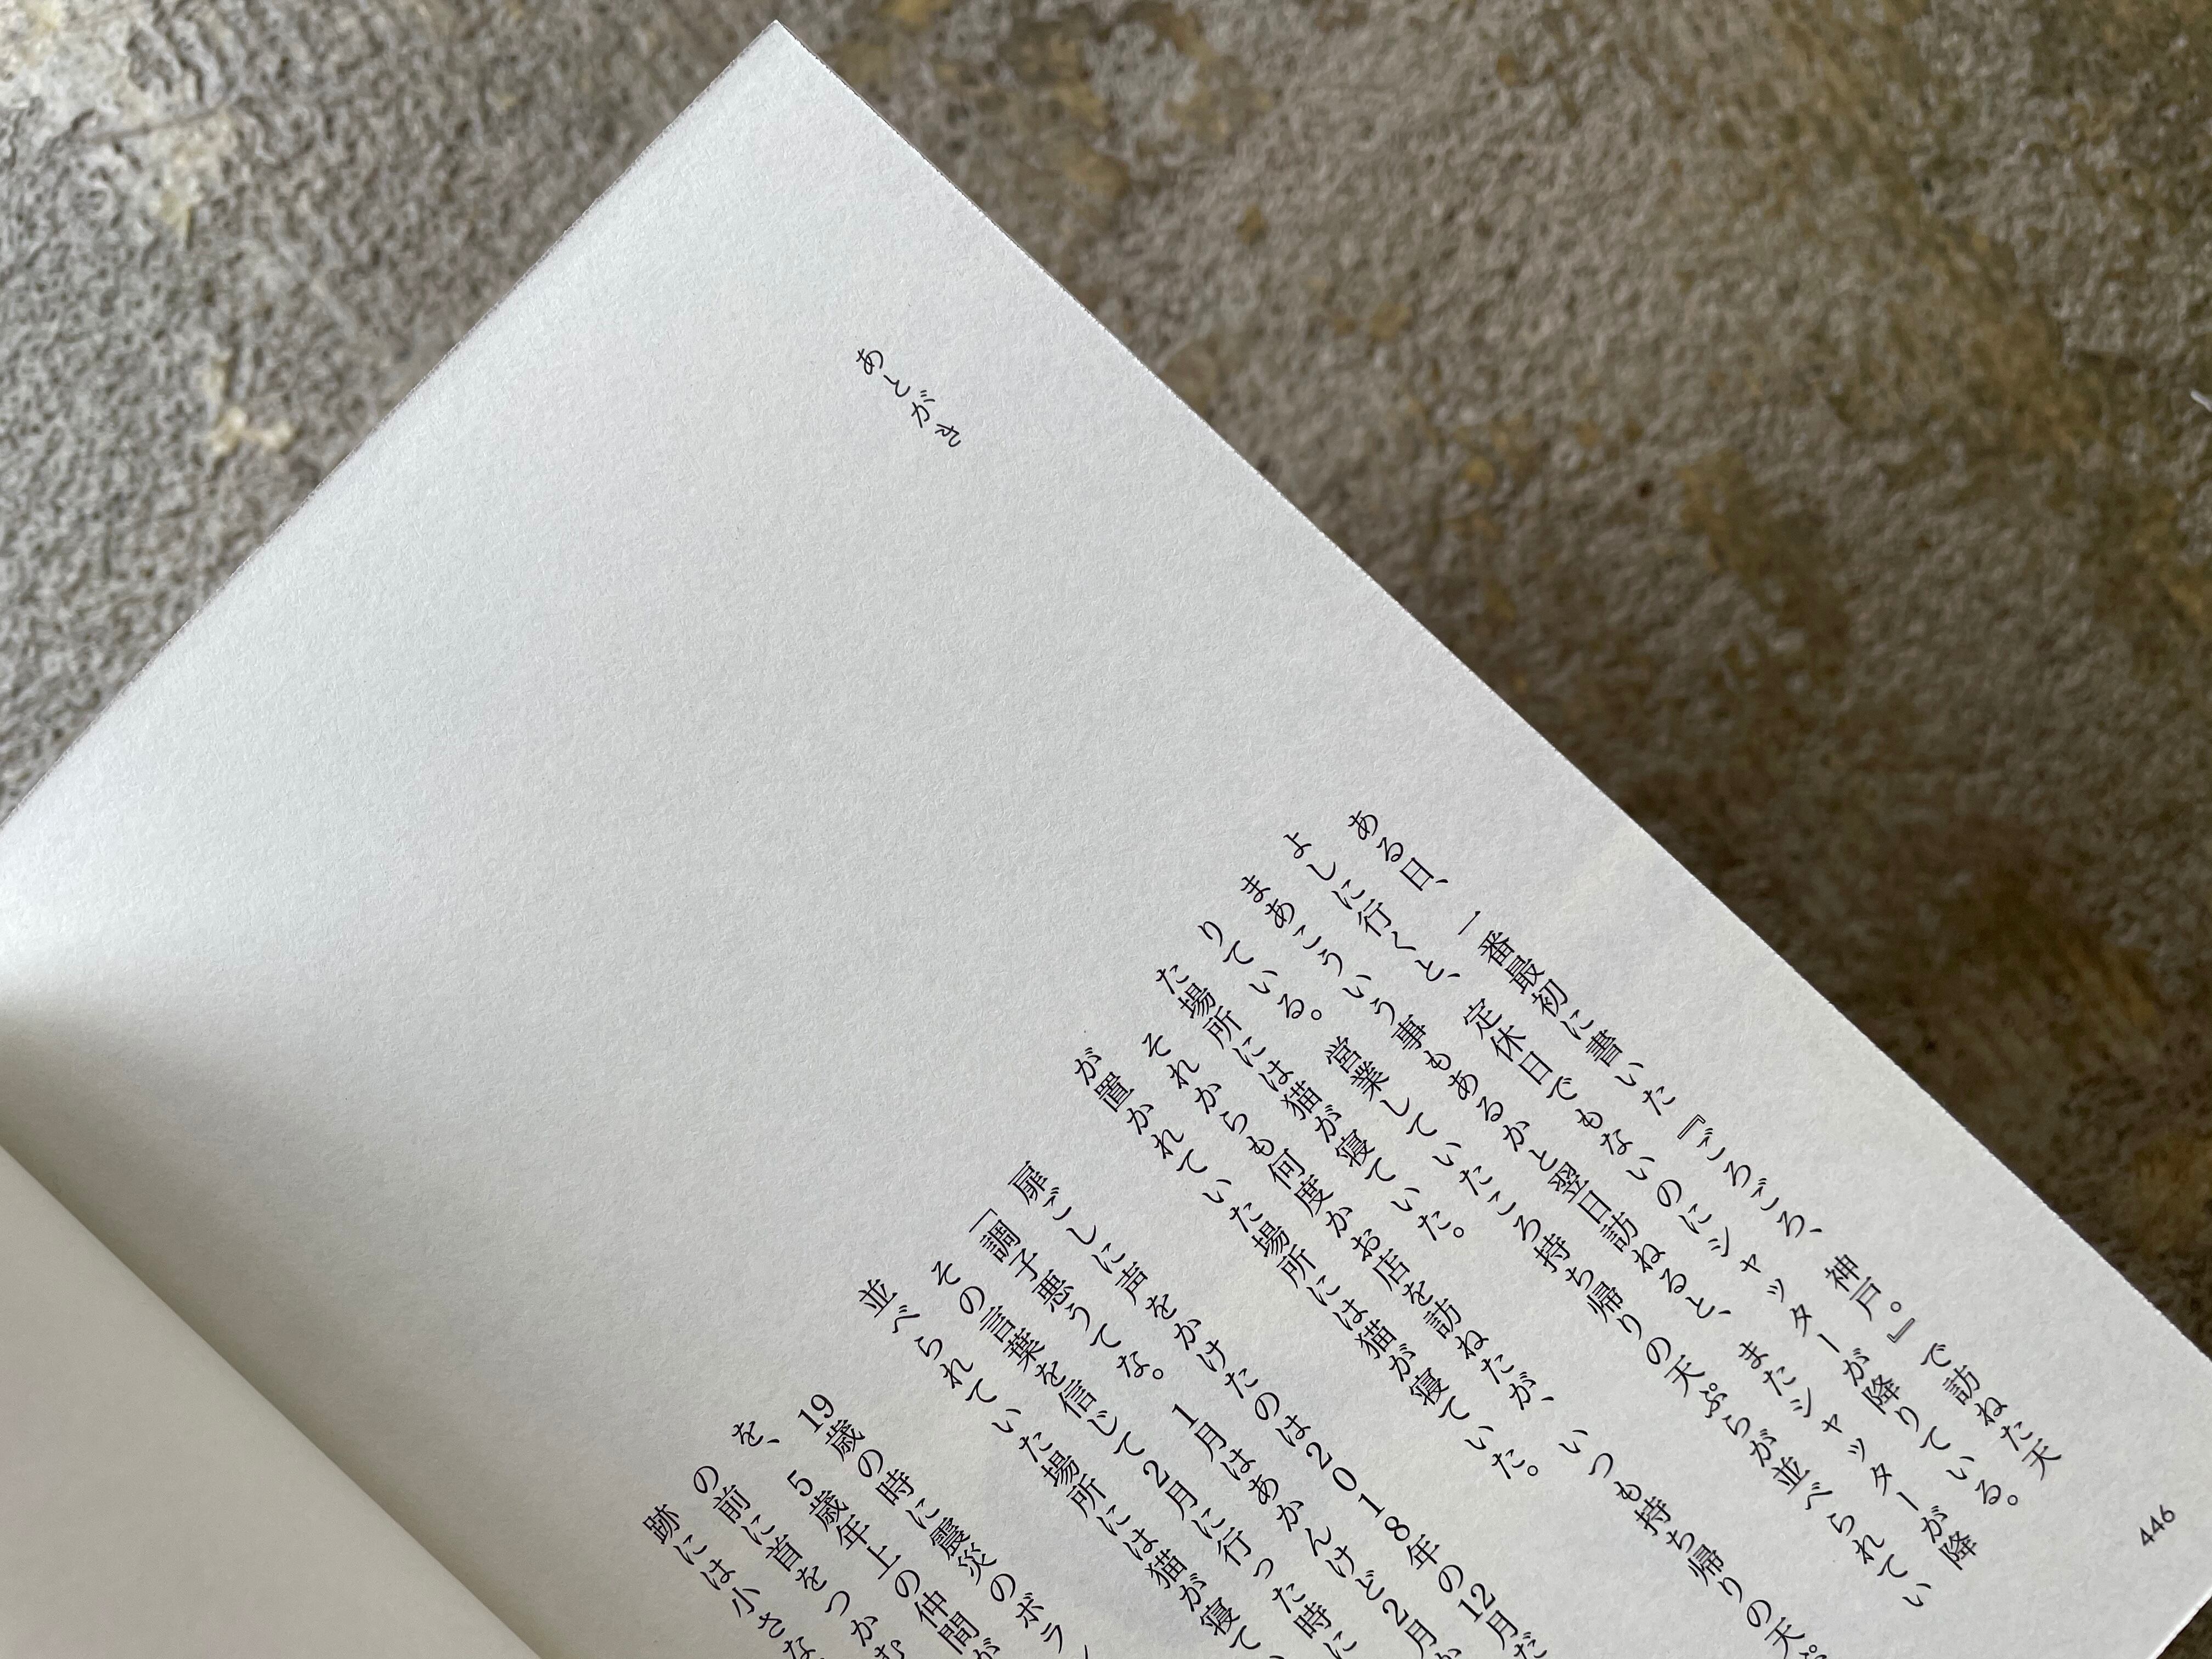 あとがき
ある日、一番最初に書いた『ごろごろ、神戸。』で訪ねた天
よしに行くと、定休日でもないのにシャッターが降りている。
まあこういう事もあるかと翌日訪ねると、またシャッターが降
りている。営業していたころ持ち帰りの天ぷらが並べられてい
た場所には猫が寝ていた。
それからも何度かお店を訪ねたが、いつも持ち帰りの天ぷ
が置かれていた場所には猫が寝ていた。
扉ごしに声をかけたのは2018年の12月だ
「調子悪うてな。1月はあかんけど2月か
その言葉を信じて2月に行った時に
並べられていた場所には猫が寝て
19歳の時に震災のボラ
を、5歳年上の仲間が
の前に首をつかむ
跡には小さな
446